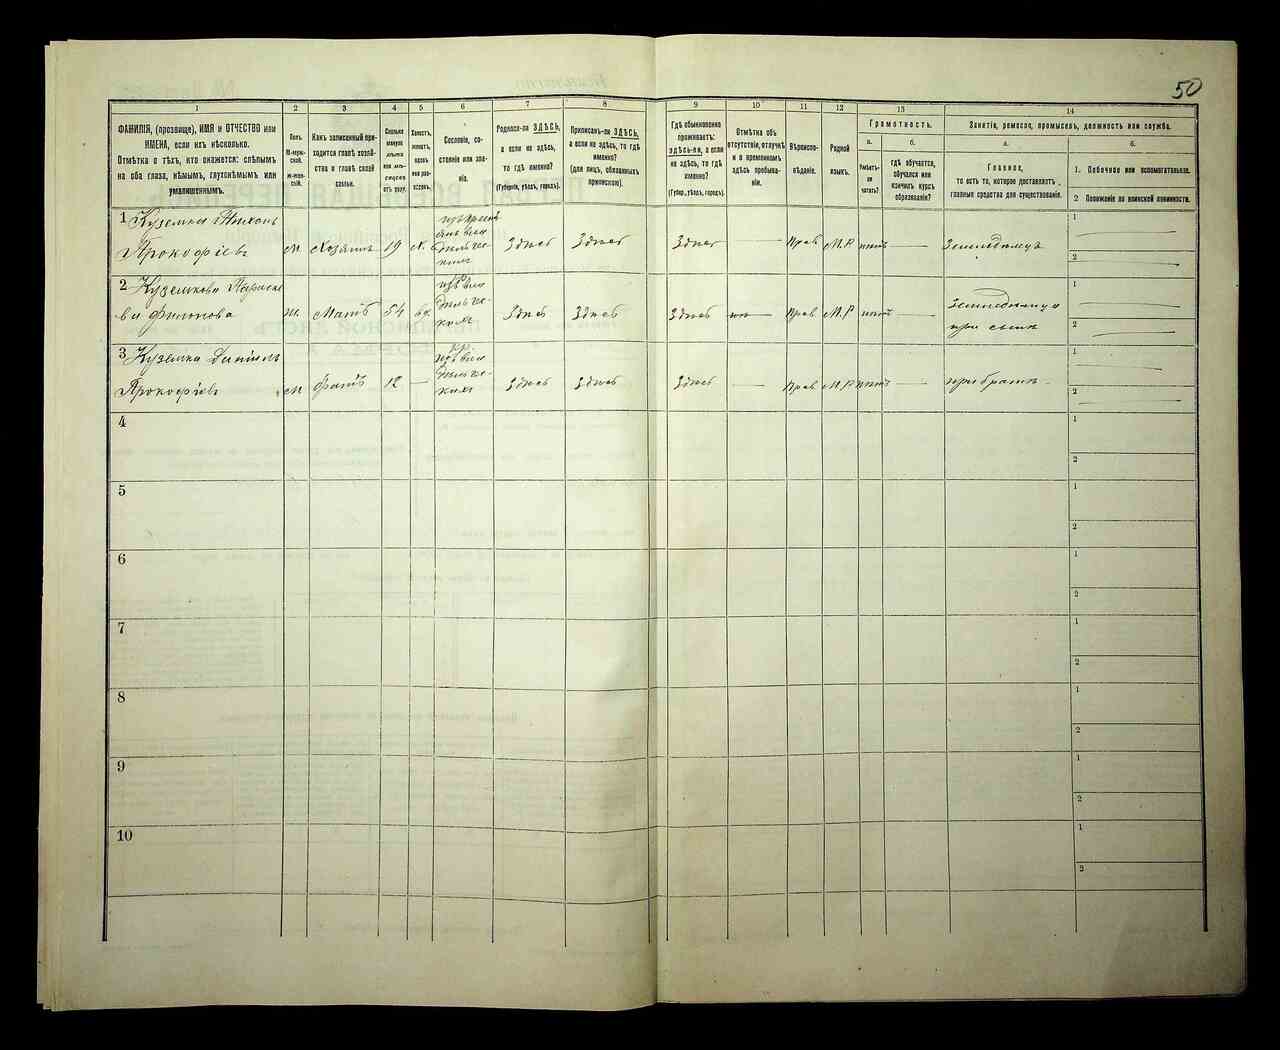 50
1
2
3
4
5
6
7
8
9
10
11
12
13
14
ФАМИЛІЯ, (прозвище), ИМЯ и ОТЧЕСТВО или
ИМЕНА, если ихъ нѣсколько.
Отмѣтка о тѣхъ, кто окажется: слѣпымъ
на оба глаза, нѣмымъ, глухонѣмымъ или
умалишеннымъ.
Полъ.
М-муж-
ской.
Ж-жен-
скій.
Какъ записанный при-
ходится главѣ хозяй-
ства и главѣ своей
семьи.
Сколько
минуло
лѣтъ
или мѣ-
сяцевъ
отъ роду.
Холостъ,
женатъ,
вдовъ
или раз-
веденъ.
Сословіе, со-
стояніе или зва-
ніе.
Родился-ли ЗДѢСЬ,
а если не здѣсь,
то гдѣ именно?
(Губернія, уѣздъ, городъ).
Приписанъ-ли ЗДѢСЬ,
а если не здѣсь, то гдѣ
именно?
(для лицъ, обязанныхъ
припискою).
Гдѣ обыкновенно
проживаетъ:
здѣсь-ли, а если
не здѣсь, то гдѣ
именно?
(Губер., уѣздъ, городъ).
Отмѣтка объ
отсутствіи, отлучкѣ
и о временномъ
здѣсь пребыва-
ніи.
Вѣроиспо-
вѣданіе.
Родной
языкъ.
Грамотность.
а.
б.
Умѣетъ-
ли
читать?
гдѣ обучается,
обучался или
кончилъ курсъ
образованія?
Занятія, ремесло, промыселъ, должность или служба.
а.
б.
Главное,
то есть то, которое доставляетъ
главныя средства для существованія.
1. Побочное или вспомогательное.
2 Положеніе по воинской повинности.
1 Куземка Тихонъ
Прокофіевъ м Хозяинъ 19 х. Здѣсь Здѣсь Здѣсь — Прав М.Р нѣтъ — Земледѣлецъ
1
2
2 Куземкова Параске
ва Филипова ж. Мать 54 вд. Здѣсь Здѣсь Здѣсь Прав М.Р нѣтъ —
при сынѣ
1
2
3 Куземка Даніилъ
Прокофіевъ м братъ 12 — Здѣсь Здѣсь Здѣсь — Прав М.Р нѣтъ — при братѣ
1
2
4
1
2
5
1
2
6
1
2
7
1
2
8
1
2
9
1
2
10
1
2